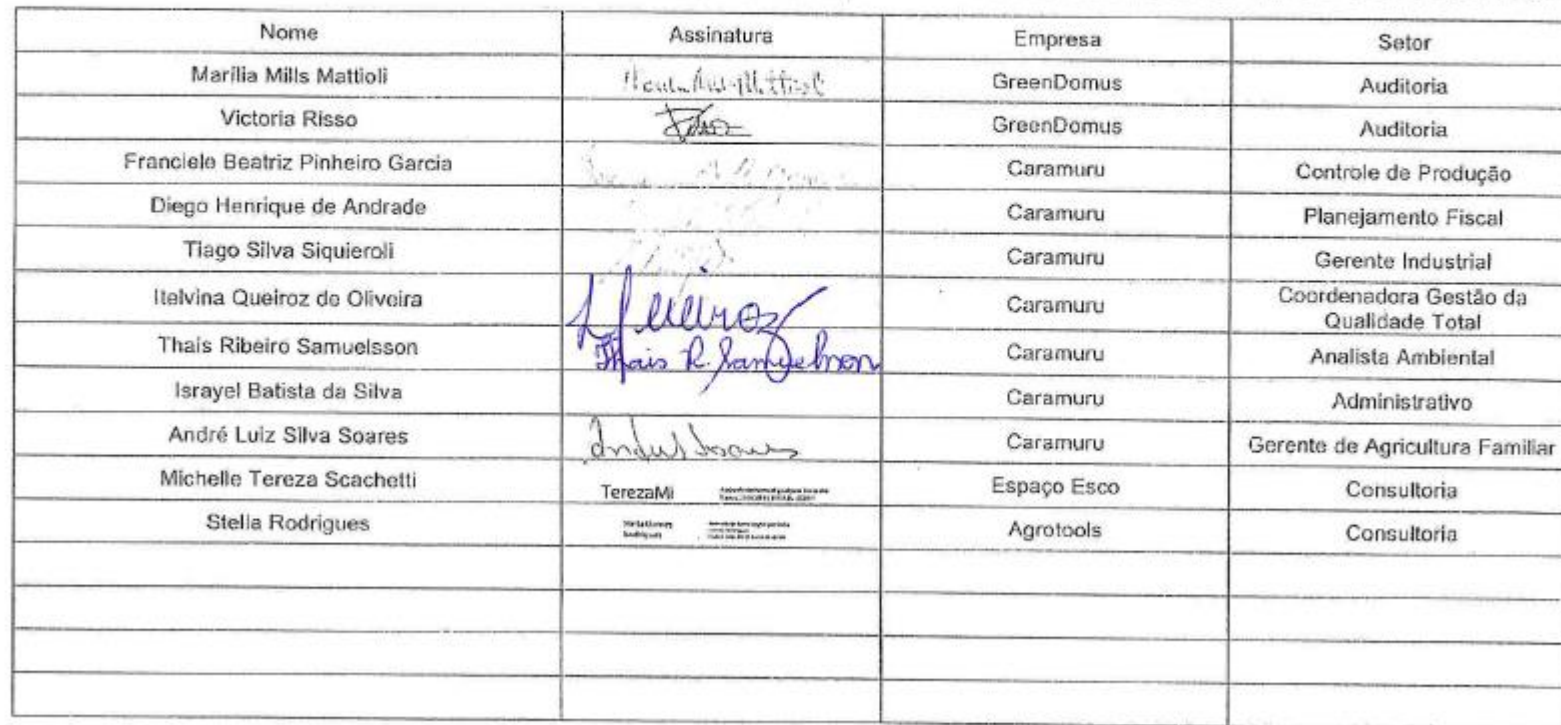 Nome Assinatura Empresa Setor
Marília Mills Mattioli GreenDomus Auditoria
Victoria Risso GreenDomus Auditoria
Franciele Beatriz Pinheiro Garcia Caramuru Controle de Produção
Diego Henrique de Andrade Caramuru Planejamento Fiscal
Tiago Silva Siquieroli Caramuru Gerente Industrial
Itelvina Queiroz de Oliveira Queiroz Caramuru Coordenadora Gestão da
Qualidade Total
Thais Ribeiro Samuelsson Thais R. Samuelsson Caramuru Analista Ambiental
Israyel Batista da Silva Caramuru Administrativo
André Luiz Silva Soares Caramuru Gerente de Agricultura Familiar
Michelle Tereza Scachetti TerezaMi Espaço Esco Consultoria
Stella Rodrigues Agrotools Consultoria